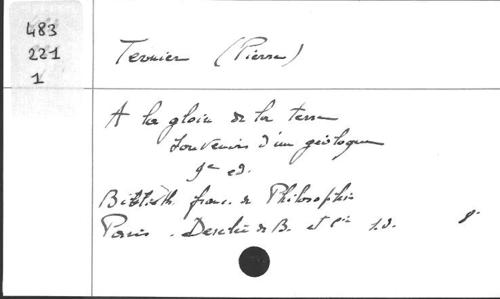 483
221
1
Termier (Pierre)
A la gloire de la terre
Souvenirs d'un géologue
9e ed.
Biblioth. franc. de Philosophie
Paris. Desclée de B. et Cie s.d. 8°